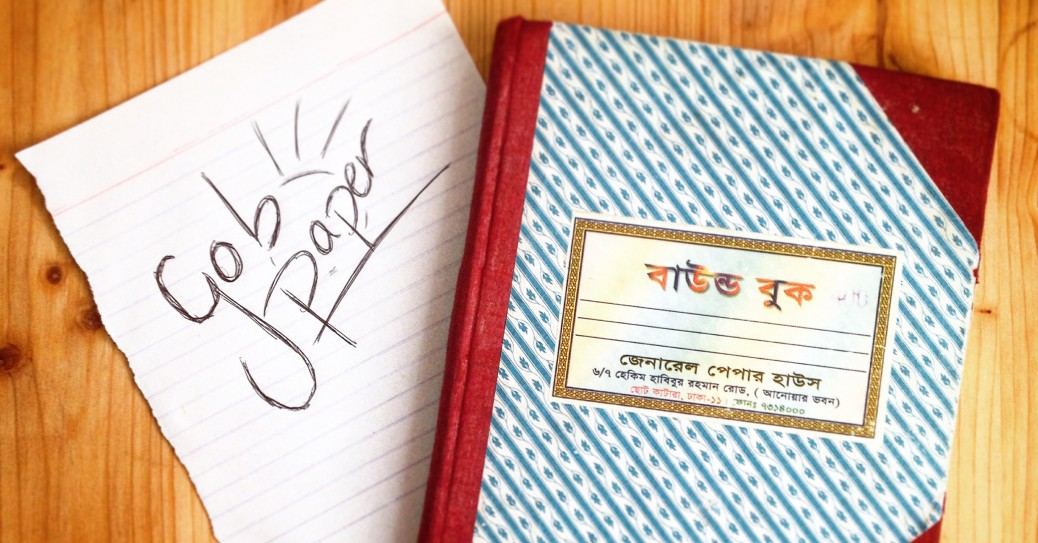 Gob
Paper
বাউন্ড বুক
জেনারেল পেপার হাউস
৬/৭ হেকিম হাবিবুর রহমান রোড, ( আনোয়ার ভবন)
ছোট কাটারা, ঢাকা-১১। ফোনঃ ৭৩১৪০০০